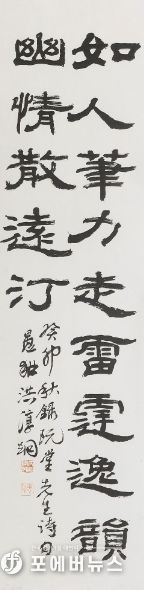 如人筆力走雷霆逸韻
幽情散遠汀
癸卯秋錄阮堂先生詩句
愚猷洪淳綱
포에버뉴스